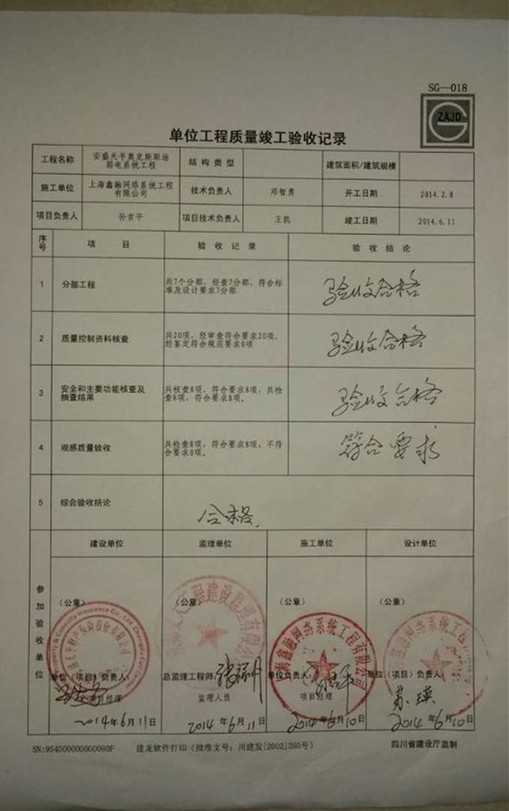 SG—018
ZAJD
单位工程质量竣工验收记录
工程名称 安盛天平奥克斯职场弱电系统工程 结构类型 建筑面积/建筑规模
施工单位 上海鑫融网络系统工程有限公司 技术负责人 邓智勇 开工日期 2014.2.8
项目负责人 孙吉平 项目技术负责人 王凯 竣工日期 2014.6.11
序号 项 目 验 收 记 录 验 收 结 论
1 分部工程 共7个分部，经查7分部，符合标准及设计要求7分部 验收合格
2 质量控制资料核查 共20项，经审查符合要求20项，经鉴定符合规范要求0项 验收合格
3 安全和主要功能核查及抽查结果 共核查8项，符合要求8项，共检查8项，符合要求8项。 验收合格
4 观感质量验收 共检查8项，符合要求8项，不符合要求0项。 符合要求
5 综合验收结论 合格.
参加验收单位 建设单位 监理单位 施工单位 设计单位
（公章） （公章） （公章） （公章）
单位（项目）负责人 总监理工程师 单位负责人 单位（项目）负责人
项目经理 监理人员 项目经理 苏瑛
2014年6月11日 2014年6月11日 2014年6月10日 2014年6月10日
SN:954000000000090F 建龙软件打印（批准文号：川建发[2002]280号） 四川省建设厅监制